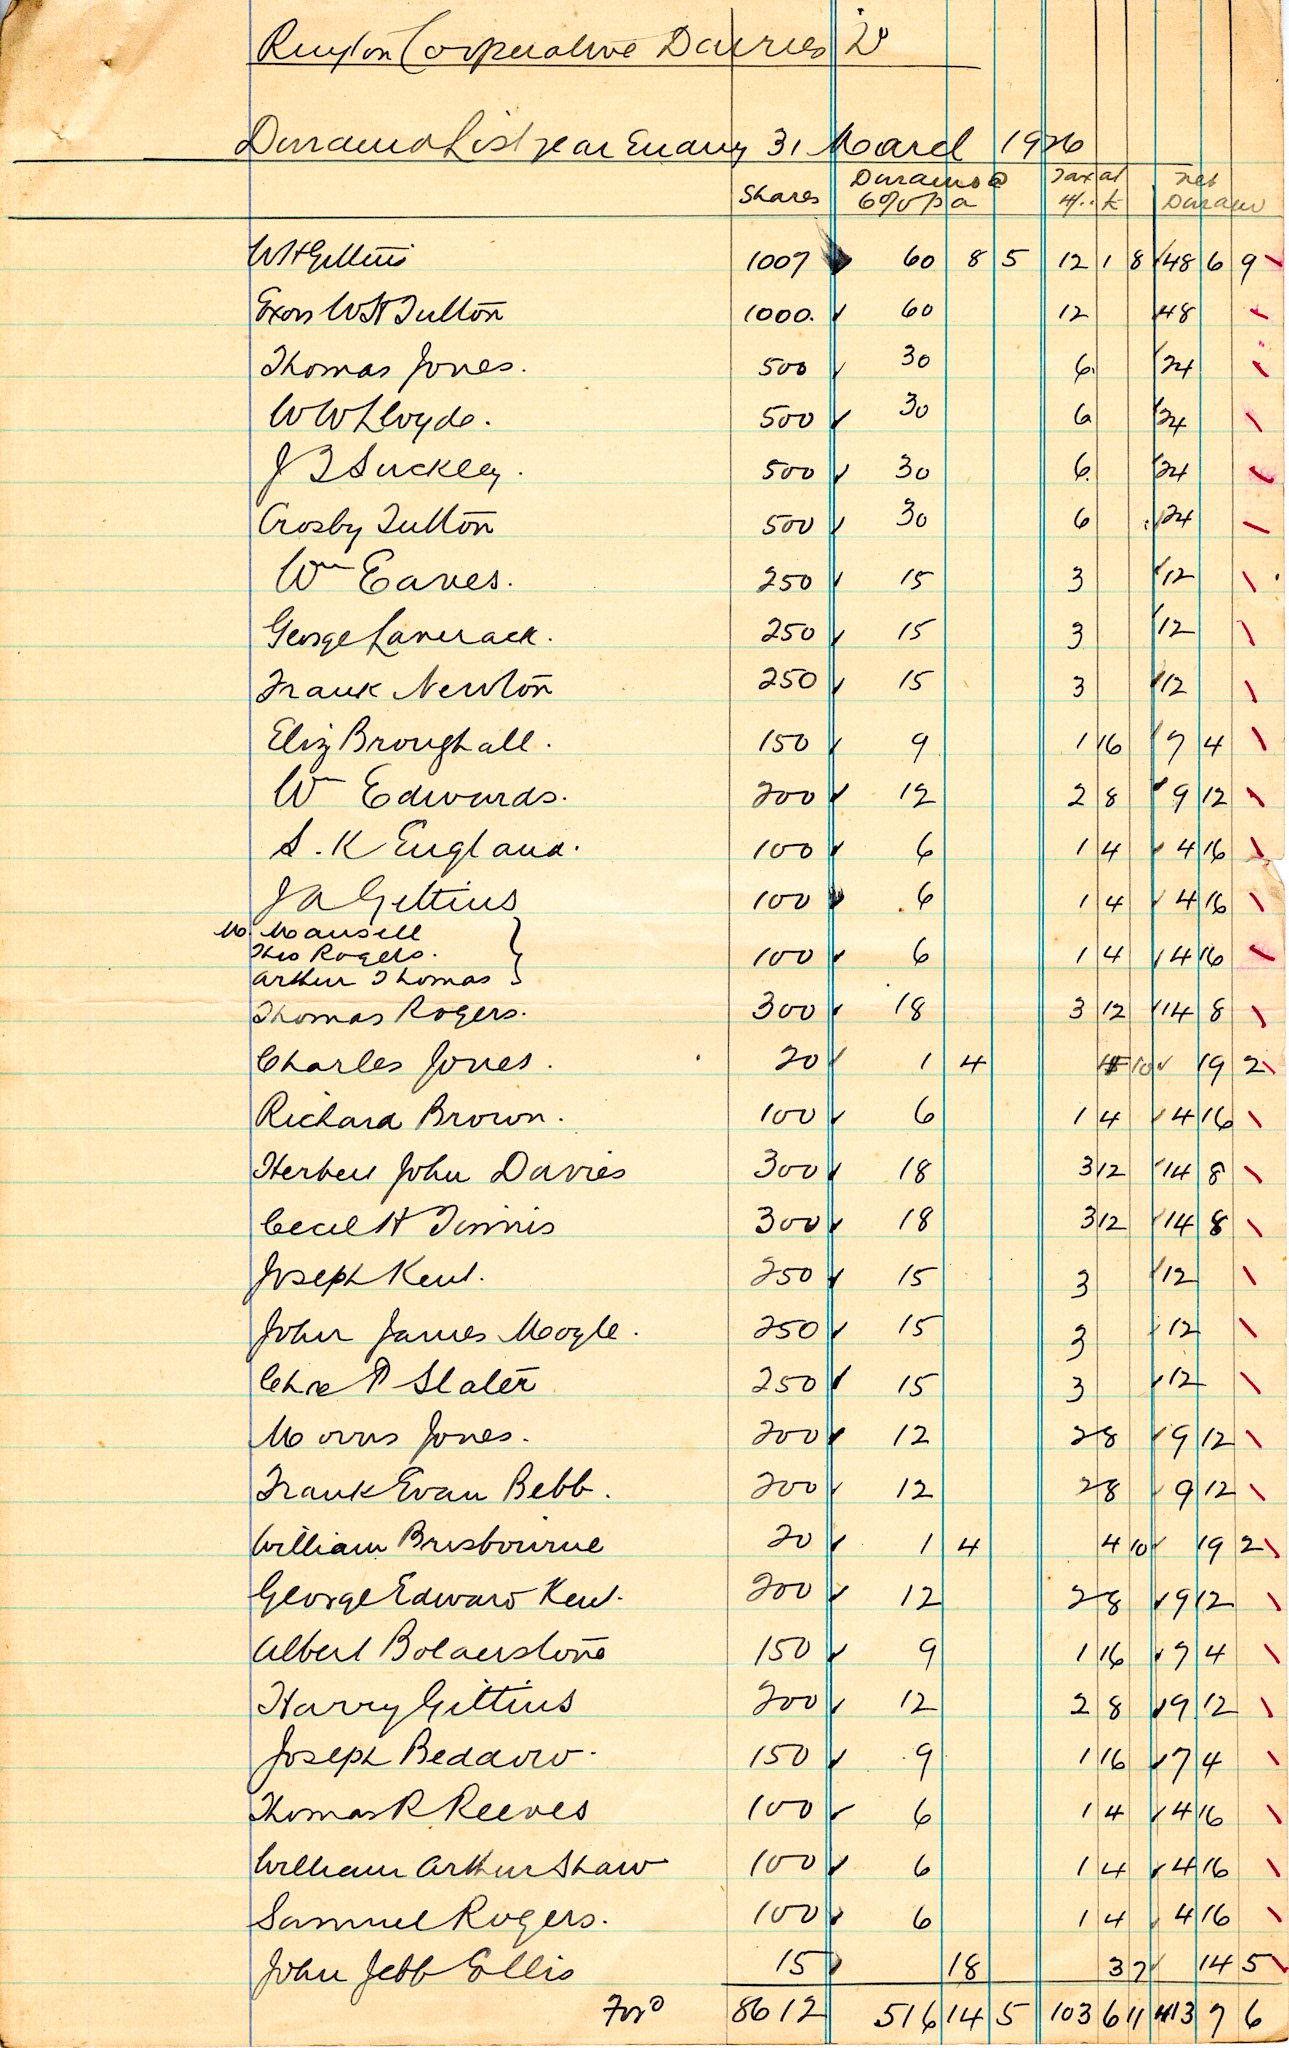 Ruyton Cooperative Dairies Ld
Dividend List year Ending 31 March 1926
Shares Dividend @ 6% p a Tax at 4/- £ Net Dividend
W H Gittins 1007 60 8 5 12 1 8 48 6 9
Exors W H Tutton 1000. 60 12 48
Thomas Jones. 500 30 6. 24
W W Lloyds. 500 30 6 24
J B Suckley. 500 30 6. 24
Crosby Tutton 500 30 6 24
Wm Eaves. 250 15 3 12
George Laverack. 250 15 3 12
Frank Newton 250 15 3 12
Eliz Broughall. 150 9 1 16 7 4
Wm Edwards. 200 12 2 8 9 12
S. K England. 100 6 1 4 4 16
J A Gittins 100 6 1 4 4 16
M. Mansell
Thos Rogers. } 100 6 1 4 4 16
Arthur Thomas
Thomas Rogers. 300 18 3 12 14 8
Charles Jones. 20 1 4 4 10 19 2
Richard Brown. 100 6 1 4 4 16
Herbert John Davies 300 18 3 12 14 8
Cecil H Timmis 300 18 3 12 14 8
Joseph Kent. 250 15 3 12
John James Moyle. 250 15 3 12
Slater 250 15 3 12
Morris Jones. 200 12 2 8 9 12
Frank Evan Bebb. 200 12 2 8 9 12
William Brisbourne 20 1 4 4 10 19 2
George Edward Kent. 200 12 2 8 9 12
Albert Bolderstone 150 9 1 16 7 4
Harry Gittins 200 12 2 8 9 12
Joseph Beddow. 150 9 1 16 7 4
Thomas R Reeves 100 6 1 4 4 16
William Arthur Shaw 100 6 1 4 4 16
Samuel Rogers. 100 6 1 4 4 16
John Jebb Ellis 15 18 3 7 14 5
Ford 8612 516 14 5 103 6 11 413 7 6